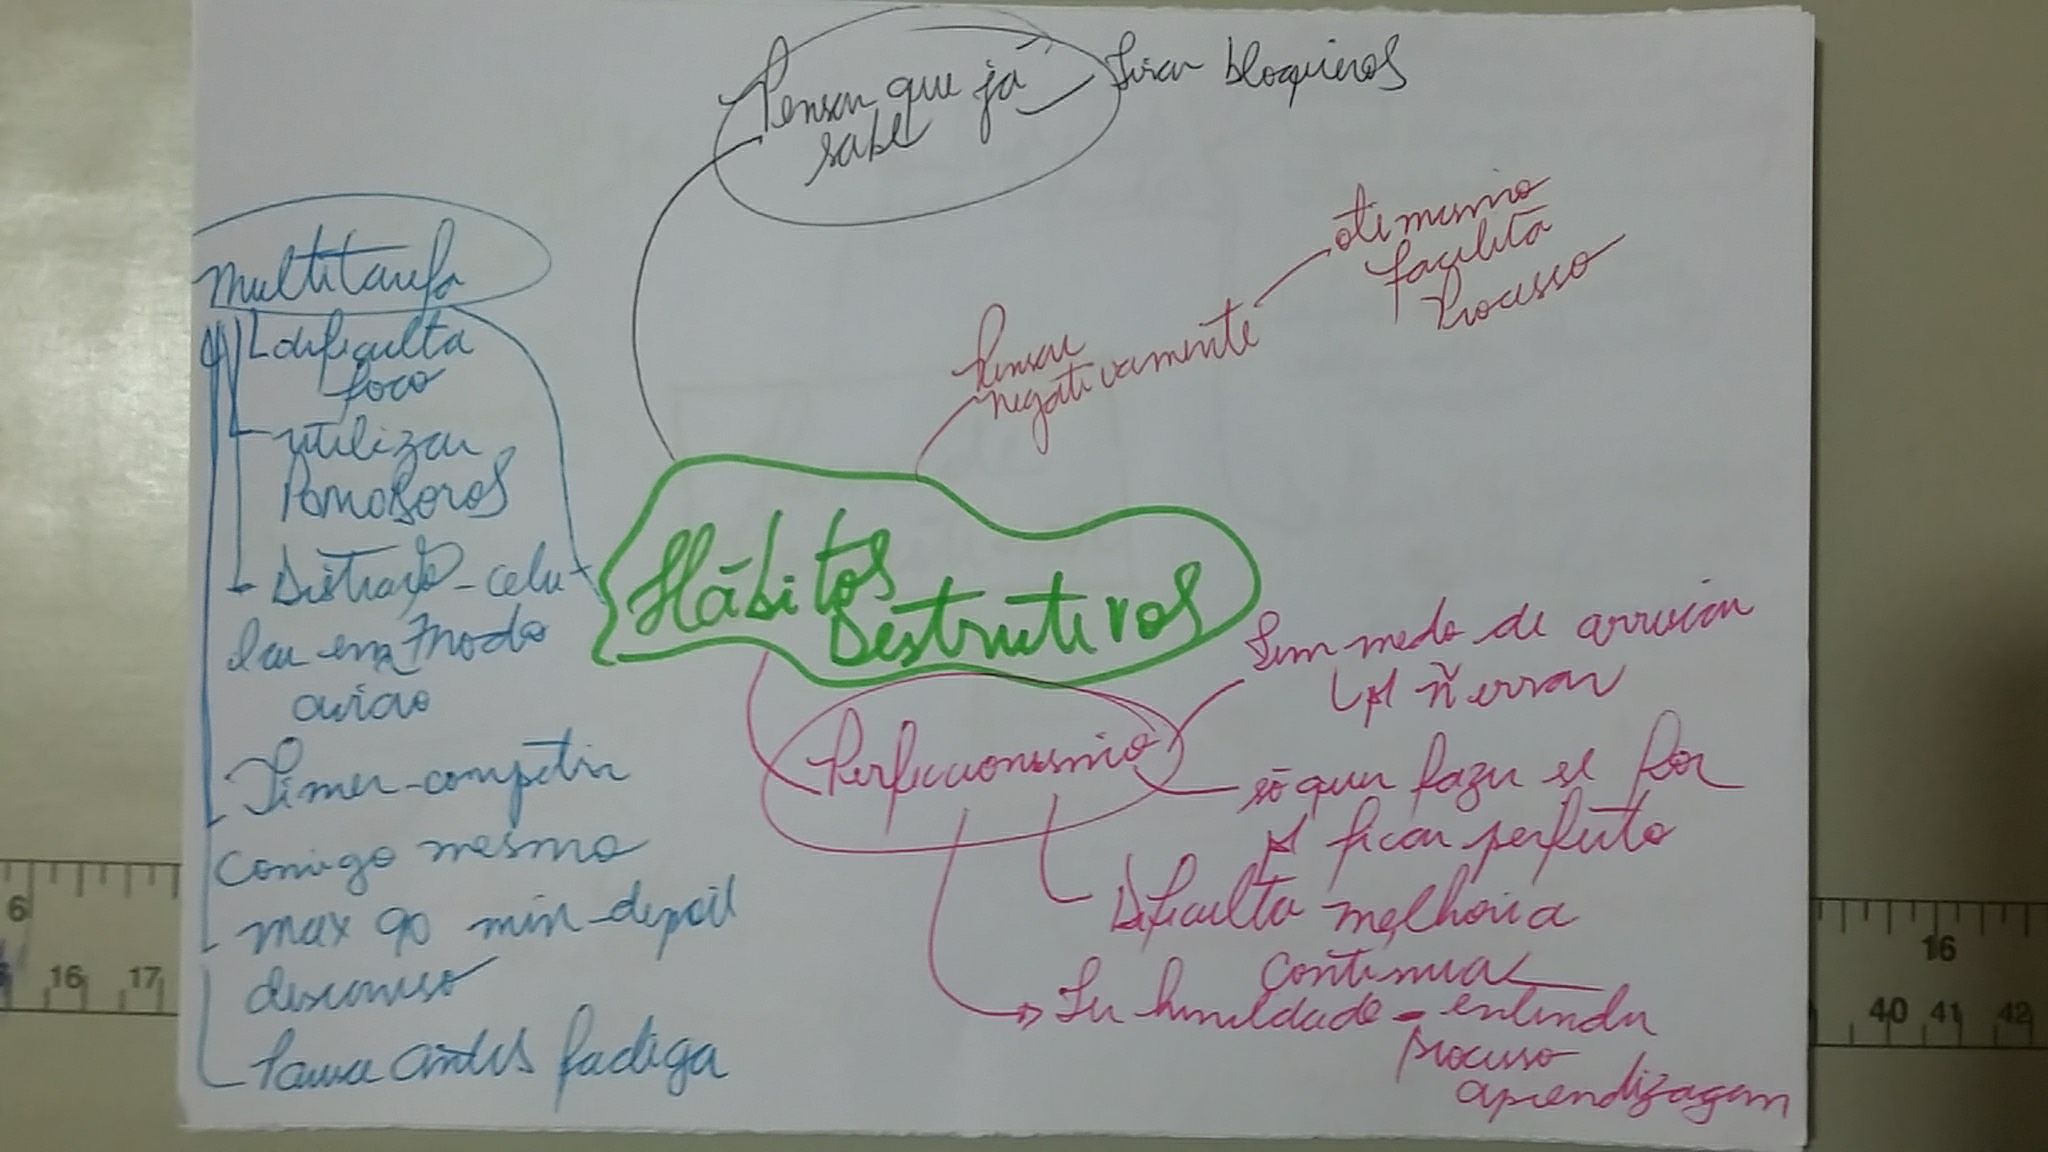 Pensar que já
sabe
tirar bloqueios
otimismo
facilita
processo
Pensar
negativamente
Multitarefa
dificulta
foco
utilizar
Pomodoros
Distração - celu
lar em modo
aviao
Timer - competir
comigo mesmo
max 90 min - depois
descanso
Pausa antes fadiga
Hábitos
Destrutivos
Perfeccionismo
Tem medo de arriscar
p/ ñ errar
só quer fazer se for
p/ ficar perfeito
Dificulta melhoria
continua
Ter humildade - entender
processo
aprendizagem
6
16
17
16
40
41
42